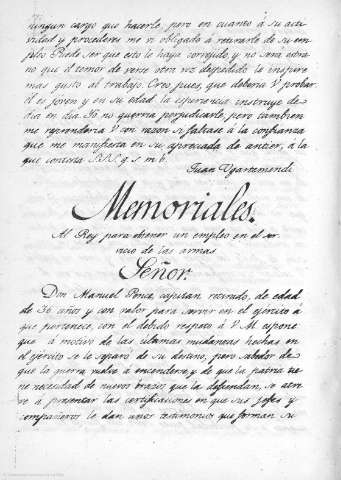 ningun cargo que hacerle, pero en cuanto á su acti
vidad y procederes me vi obligado á retirarle de su em
pleo. Puede ser que esto le haya correjido, y no será estra
no que el temor de verse otra vez despedido le inspire
mas gusto al trabajo. Creo pues, que deberia V. probar.
Él es joven y en su edad la esperiencia instruye de
dia en dia. Yo no querria perjudicarle, pero tambien
me reprenderia V con razon si faltase á la confianza
que me manifiesta en su apreciada de antier, á la
que contesta S.S.S. q s m b.
Juan Ugartemendi
Memoriales.
Al Rey para obtener un empleo en el ser
vicio de las armas
Señor.
Don Manuel Ponce, capitan retirado, de edad
de 36 años y con valor para servir en el ejército á
que pertenece, con el debido respeto á V.M. espone
que á motivo de las últimas mudanzas hechas en
el ejército se le separó de su destino, pero sabedor de
que la guerra vuelve á encenderse y de que la patria tie
ne necesidad de nuevos brazos que la defiendan, se atre
ve á presentar las certificaciones en que sus jefes y
compañeros le dan unos testimonios que forman su